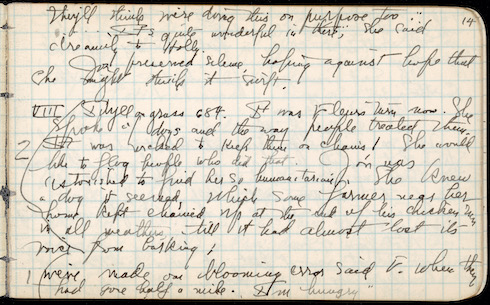 They'll think we're doing this on purpose too
14
"It's quite wonderful in there," she said
dreamily to Holly.
Jon preserved silence hoping against hope that
she might think it swift.
VIII Idyll on grass 684. It was Fleur's turn now. She
spoke of dogs and the way people treated them.
2 It was wicked to keep them on chains! She would
like to flog people who did that. Jon was
astonished to find her so humanitarian. She knew
a dog it seemed, which some farmer near her
home kept chained up at the end of his chicken run
in all weathers till it had almost lost its
voice from barking;
1 We've made one blooming error said F. when they
had gone half a mile. I'm hungry"